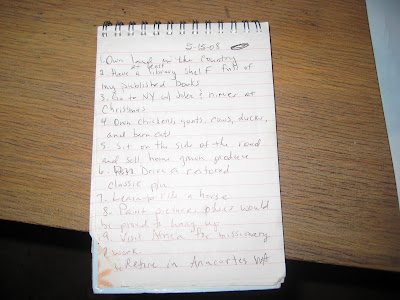 5-15-08
1. Own land in the country
at least
2. Have a library shelf full of
my published books
3. Go to NY w/ Jolee & nieces at
Christmas
4. Own chickens, goats, cows, ducks,
and barn cats
5. Sit on the side of the road
and sell home grown produce
6. Drive a restored
classic
7. Learn to ride a horse
8. Paint pictures others would
be proud to hang up
9. Visit Africa for missionary
work
Retire in Anacortes WA